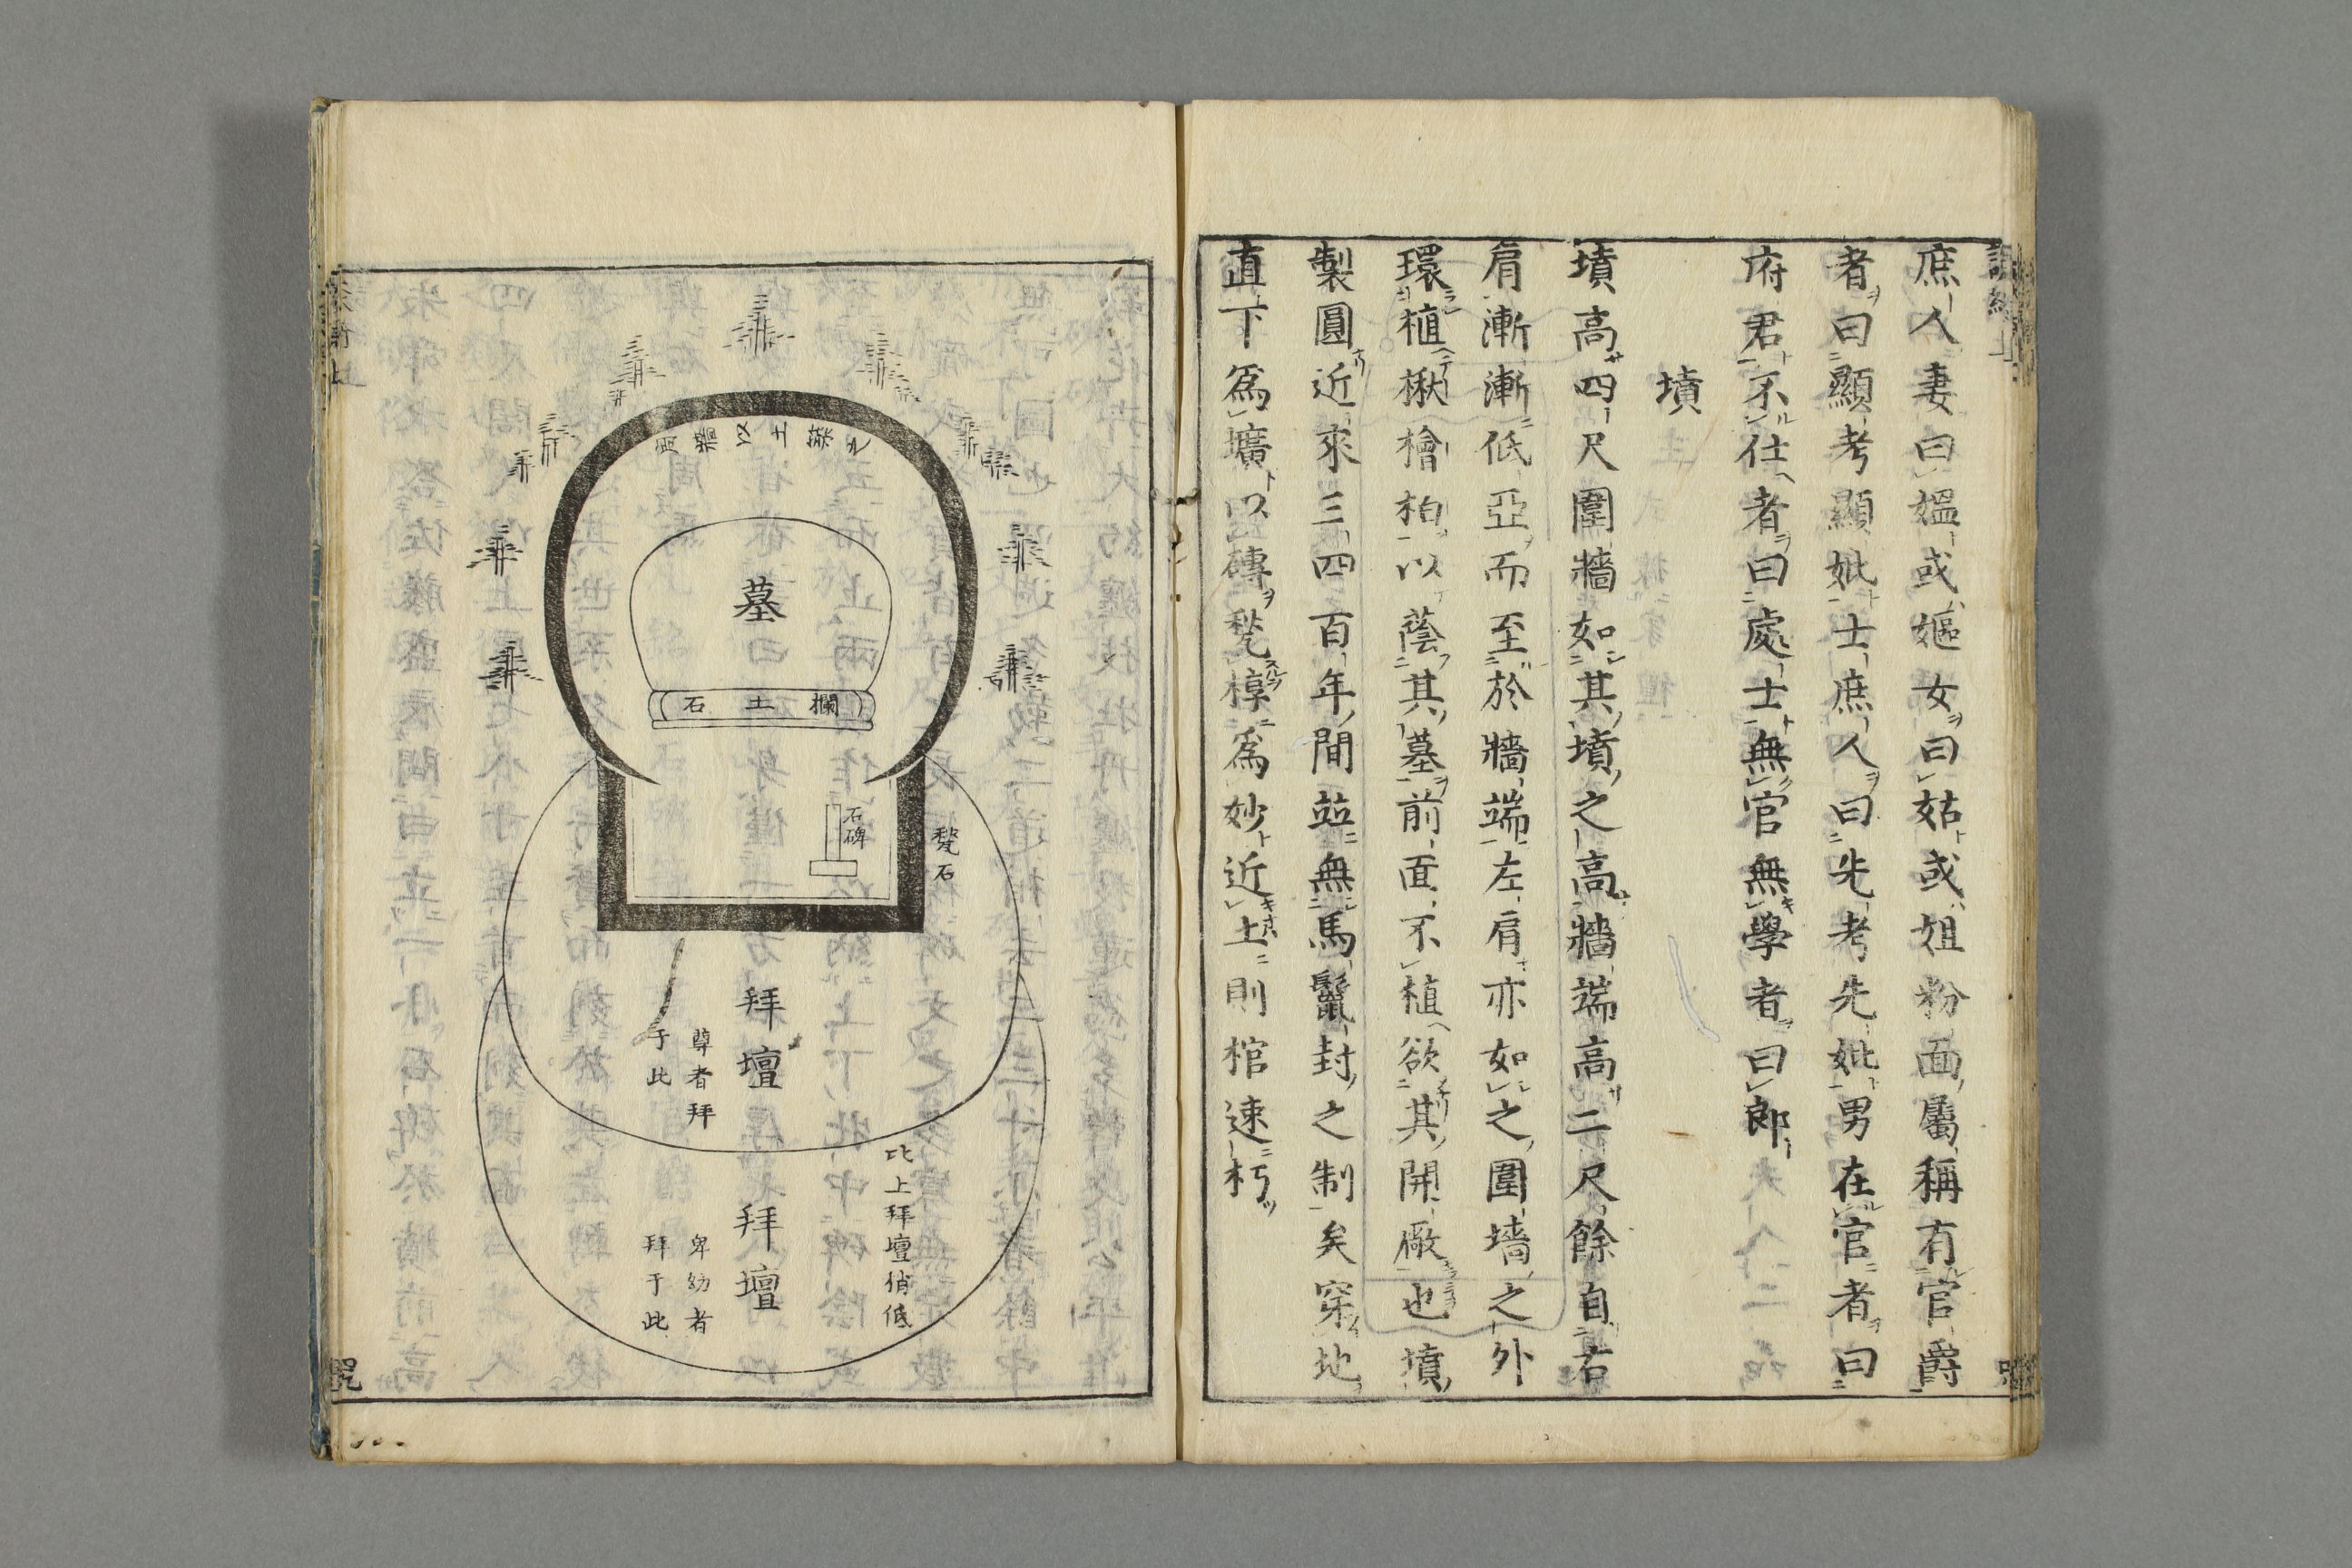 庶人妻曰媼或嫗女曰姑或姐粉面屬稱有官爵
者曰顯考顯妣士庶人曰先考先妣男在官者曰
府君不仕者曰處士無官無學者曰郎
墳
墳高四尺圍牆如其墳之高牆端高二尺餘自右
肩漸漸低亞而至於牆端左肩亦如之圍墻之外
環植楸檜柏以蔭其墓前面不植欲其開厰也墳
製圓近來三四百年間竝無馬鬣封之制矣穿地
直下爲壙以磚甃槨爲妙近土則棺速朽
墓
石土欄
石碑
甃石
拜壇
尊者拜
于此
比上拜壇稍低
拜壇
卑幼者
拜于此